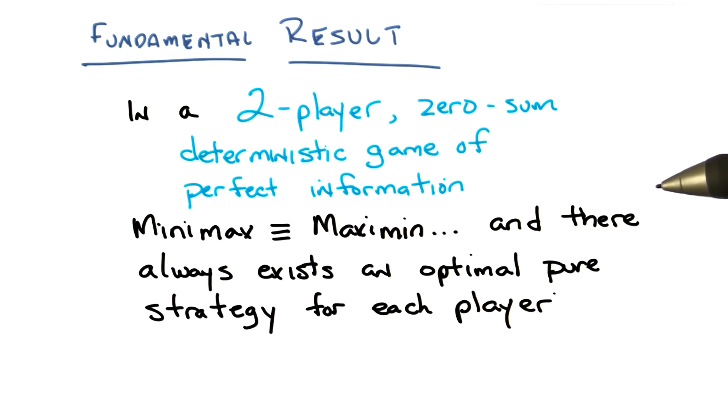 FUNDAMENTAL RESULT
IN a 2-player, zero-sum
deterministic game of
perfect information
Minimax ≡ Maximin... and there
always exists an optimal pure
strategy for each player